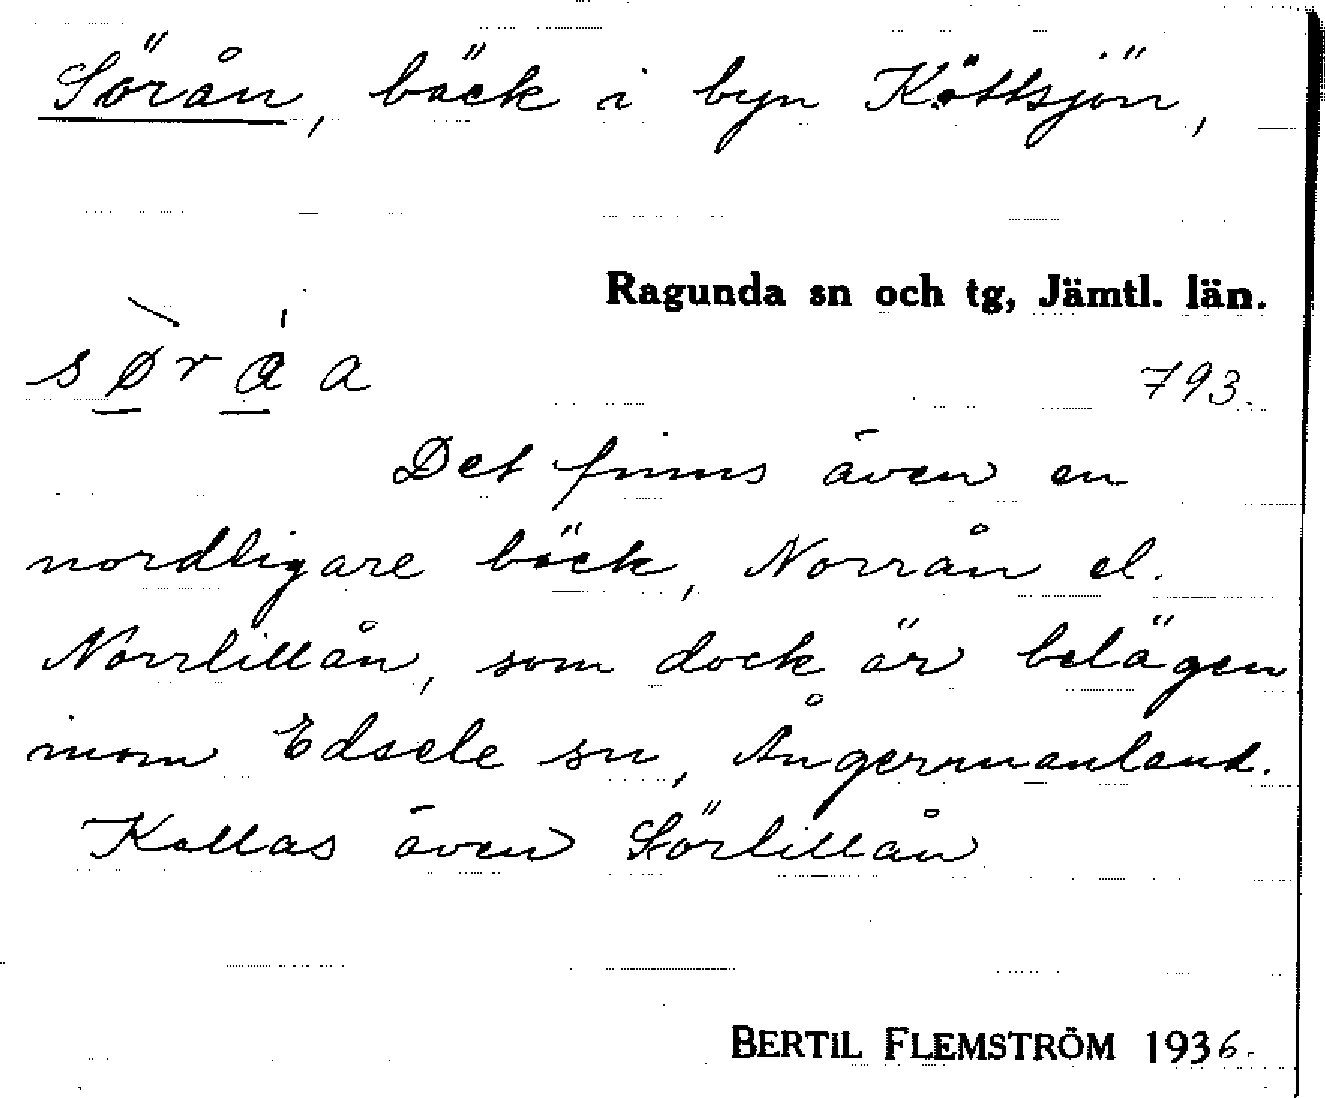 Sörån, bäck i byn Köttsjön,
Ragunda sn och tg, Jämtl. län.
793.
Det finns även en
nordligare bäck, Norrån el.
Norrlillån, som dock är belägen
inom Edsele sn, Ångermanland.
Kallas även Sörlillån
BERTIL FLEMSTRÖM 1936.